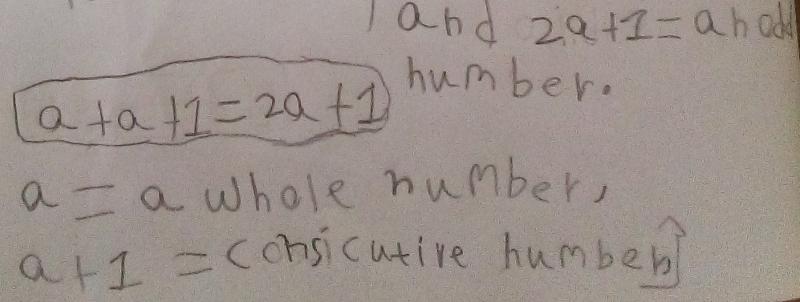 and 2a+1=an odd
number.
a+a+1=2a+1
a = a whole number,
a+1 = consicutive number